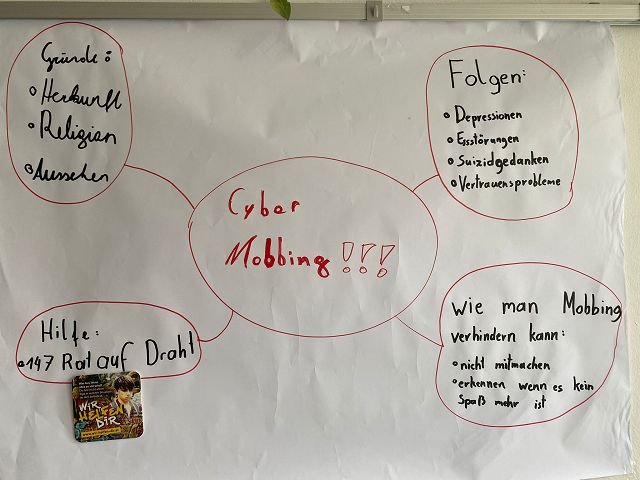 Gründe:
Herkunft
Religian
Aussehen
Folgen:
Depressionen
Essstörungen
Suizidgedanken
Vertrauensprobleme
Cyber
Mobbing!!!
Hilfe:
147 Rat auf Draht
WIR
HELFEN
DIR
wie man Mobbing
verhindern kann:
nicht mitmachen
erkennen wenn es kein
Spaß mehr ist